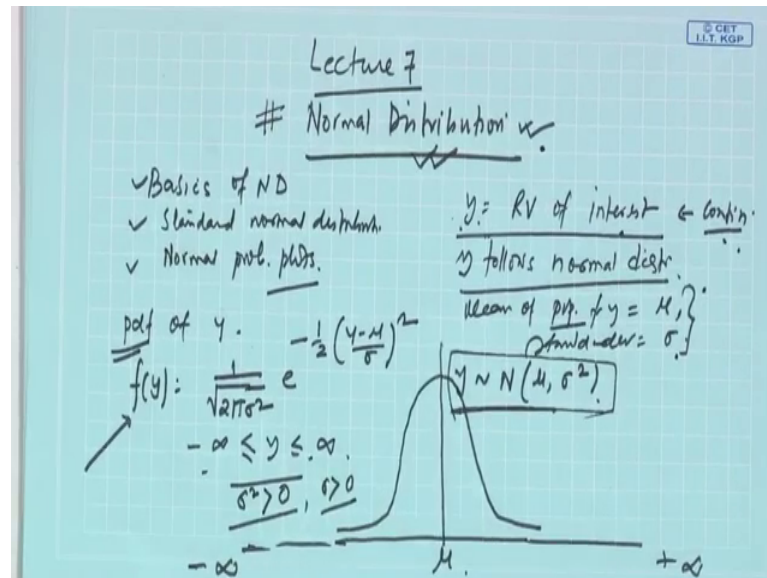 © CET
I.I.T. KGP
Lecture 7
# Normal Distribution
✓ Basics of ND
✓ Standard normal distribution.
✓ Normal prob. plots.
y = RV of interest ← Contin.
y follows normal distr.
Mean of pop. of y = μ,
Standard dev = σ.
y ~ N(μ, σ²)
pdf of y.
f(y) = 1/√(2πσ²) e^(-1/2 ((y-μ)/σ)²)
-∞ ≤ y ≤ ∞.
σ² > 0, σ > 0
-∞ μ. +∞